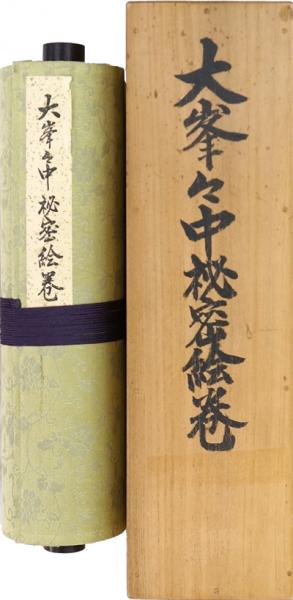 大峯々中秘密絵巻
大峯々中秘密絵巻